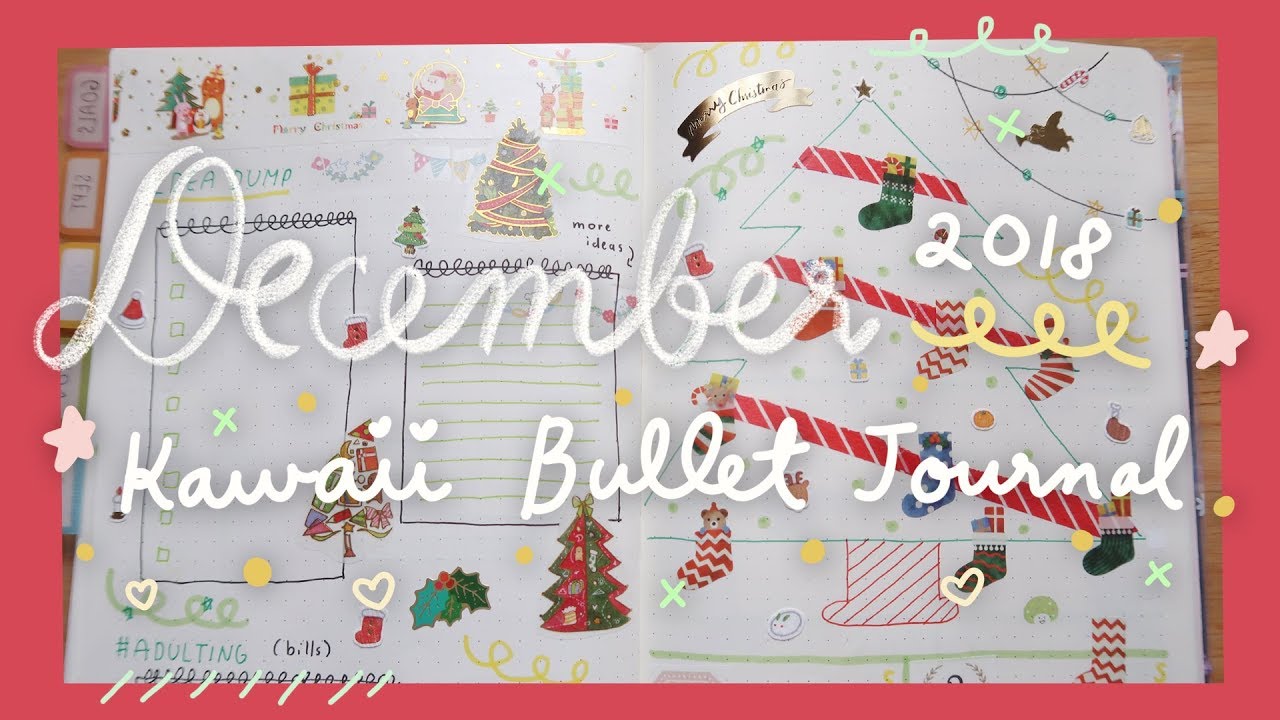 Merry Christmas
Merry Christmas
GOALS
IDEA DUMP
SEPT
more
ideas
December
2018
Kawaii Bullet Journal
#ADULTING (bills)
S
S